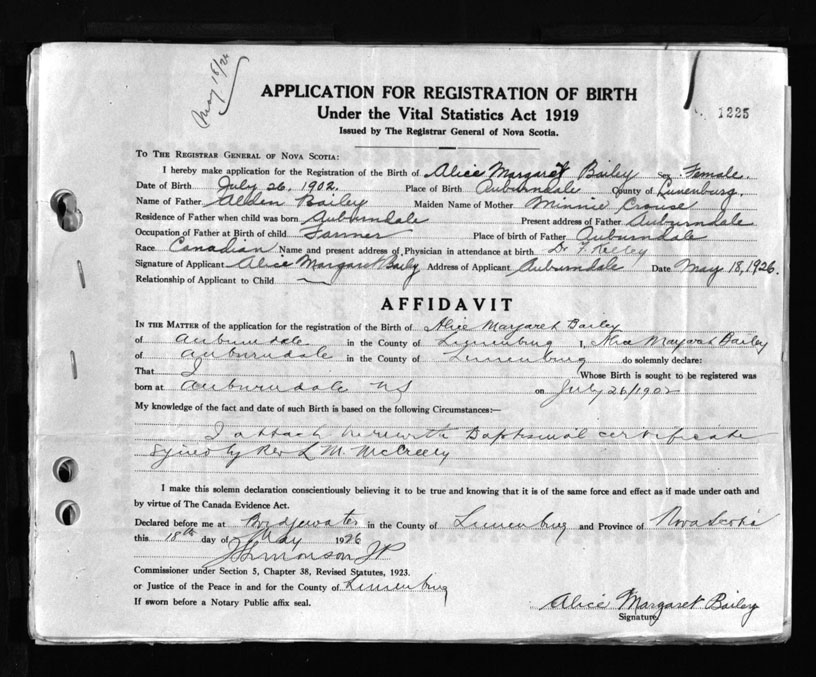 May 18/26
1225
APPLICATION FOR REGISTRATION OF BIRTH
Under the Vital Statistics Act 1919
Issued by The Registrar General of Nova Scotia.
TO THE REGISTRAR GENERAL OF NOVA SCOTIA:
I hereby make application for the Registration of the Birth of Alice Margaret Bailey sex Female.
Date of Birth July 26, 1902. Place of Birth Auburndale County of Lunenburg.
Name of Father Alden Bailey Maiden Name of Mother Minnie Crouse
Residence of Father when child was born Auburndale Present address of Father Auburndale
Occupation of Father at Birth of child Farmer Place of birth of Father Auburndale
Race Canadian Name and present address of Physician in attendance at birth Dr F.
Signature of Applicant Alice Margaret Baily Address of Applicant Auburndale Date May 18, 1926.
Relationship of Applicant to Child
AFFIDAVIT
IN THE MATTER of the application for the registration of the Birth of Alice Margaret Bailey
of auburndale in the County of Lunenburg I, Alice Margaret Bailey
of auburndale in the County of Lunenburg do solemnly declare:
That I Whose Birth is sought to be registered was
born at auburndale NS on July 26/1902
My knowledge of the fact and date of such Birth is based on the following Circumstances:—
I attach herewith Baptismal certificate
signed by Rev L M McCreery
I make this solemn declaration conscientiously believing it to be true and knowing that it is of the same force and effect as if made under oath and
by virtue of The Canada Evidence Act.
Declared before me at Bridgewater in the County of Lunenburg and Province of Nova Scotia
this 18th day of May 1926
JP
Commissioner under Section 5, Chapter 38, Revised Statutes, 1923.
or Justice of the Peace in and for the County of Lunenburg
If sworn before a Notary Public affix seal.
Alice Margaret Bailey
Signature